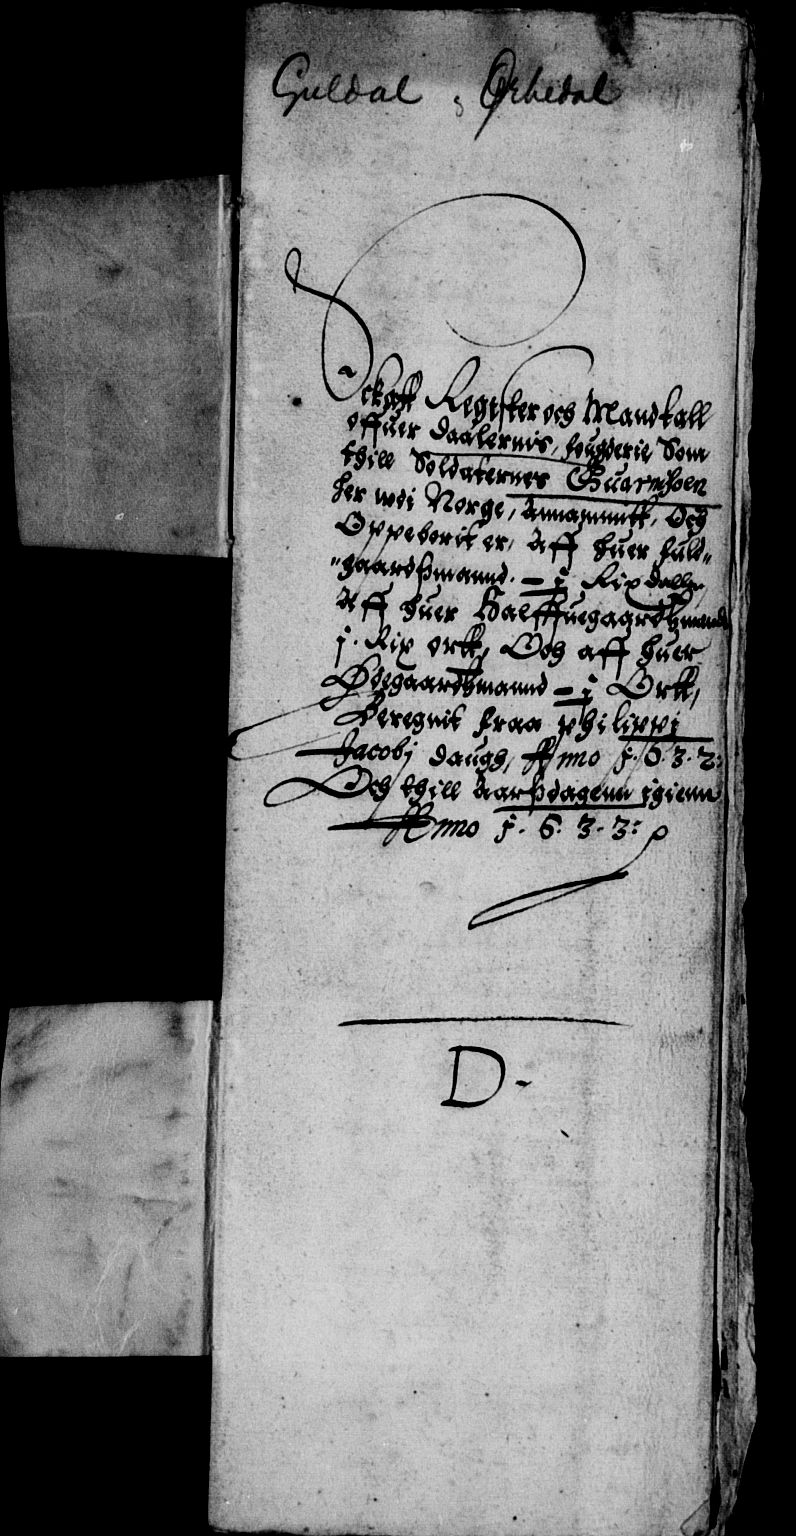 Guldal, Örkedal
Schaff Register och Mandtall
offuer Daalernis, fougderie Som
thill Soldaternes Guarnison
her wdi Norge, Annammitt, Och
Oppeborit er, Aff huer fuld-
gaardsmannd. - j Rixdaller,
Aff huer Halffuegaardsmannd
j. Rix ortt, Och aff huer
Ödegaardsmannd - j Ortt,
Beregnit fraa philippi
Jacobj daugh, Anno j. 6. 3. 2:
Och thill Aarsdagenn jgienn
Anno j. 6. 3. 3:
D.